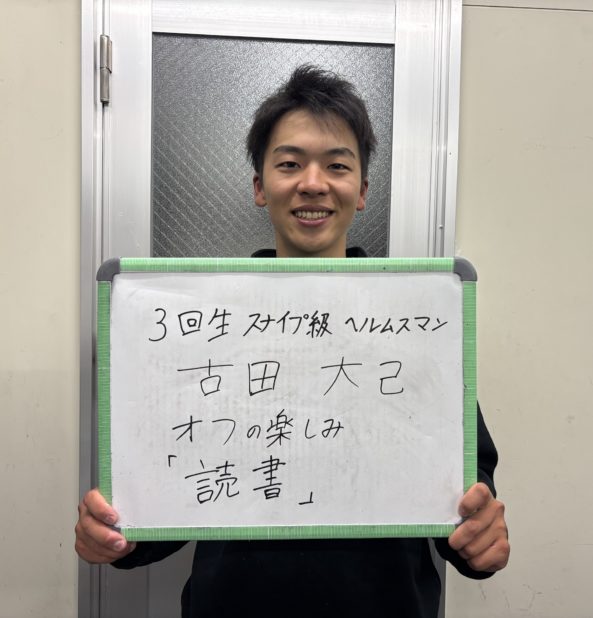 3回生 スナイプ級 ヘルムスマン
古田 大己
オフの楽しみ
「読書」